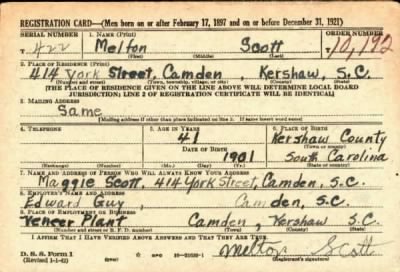 REGISTRATION CARD—(Men born on or after February 17, 1897 and on or before December 31, 1921)
SERIAL NUMBER 1. NAME (Print) ORDER NUMBER
T 422 Melton Scott 10,192
(First) (Middle) (Last)
2. PLACE OF RESIDENCE (Print)
414 York Street, Camden, Kershaw, S.C.
(Number and street) (Town, township, village, or city) (County) (State)
[THE PLACE OF RESIDENCE GIVEN ON THE LINE ABOVE WILL DETERMINE LOCAL BOARD
JURISDICTION; LINE 2 OF REGISTRATION CERTIFICATE WILL BE IDENTICAL]
3. MAILING ADDRESS
Same
[Mailing address if other than place indicated on line 2. If same insert word same]
4. TELEPHONE 5. AGE IN YEARS 6. PLACE OF BIRTH
41 Kershaw County
DATE OF BIRTH (Town or county)
1901 South Carolina
(Exchange) (Number) (Mo.) (Day) (Yr.) (State or country)
7. NAME AND ADDRESS OF PERSON WHO WILL ALWAYS KNOW YOUR ADDRESS
Maggie Scott, 414 York Street, Camden, S.C.
8. EMPLOYER'S NAME AND ADDRESS
Edward Guy, Camden, S.C.
9. PLACE OF EMPLOYMENT OR BUSINESS
Veneer Plant Camden, Kershaw S.C.
(Number and street or R. F. D. number) (Town) (County) (State)
I AFFIRM THAT I HAVE VERIFIED ABOVE ANSWERS AND THAT THEY ARE TRUE.
D. S. S. Form 1 Melton Scott
(Revised 1-1-42) (Registrant's signature)